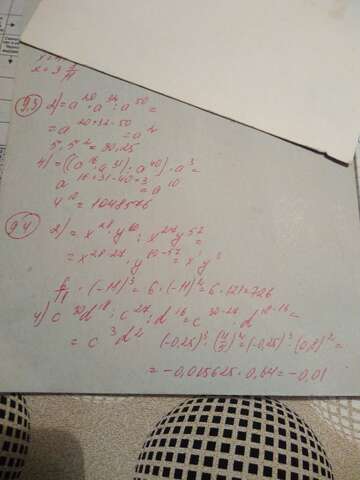 x + 3
93 2) = a²⁰ · a³² : a⁵⁰ =
= a²⁰⁺³²⁻⁵⁰ = a²
5,5² = 30,25
4) = ((a¹⁶ · a³¹) : a⁴⁰) · a³ =
a¹⁶⁺³¹⁻⁴⁰⁺³ = a¹⁰
4¹⁰ = 1048576
94 2) = x²⁸ · y⁶⁰ : x²⁷ y⁵⁷ =
= x²⁸⁻²⁷ · y⁶⁰⁻⁵⁷ = x y³
4) c³⁰ d¹⁸ : c²⁷ : d¹⁶ = c³⁰⁻²⁷ · d¹⁸⁻¹⁶ =
= c³ d² (-0,25)³ · (4/5)² = (-0,25)³ · (0,8)² =
= -0,015625 · 0,64 = -0,01